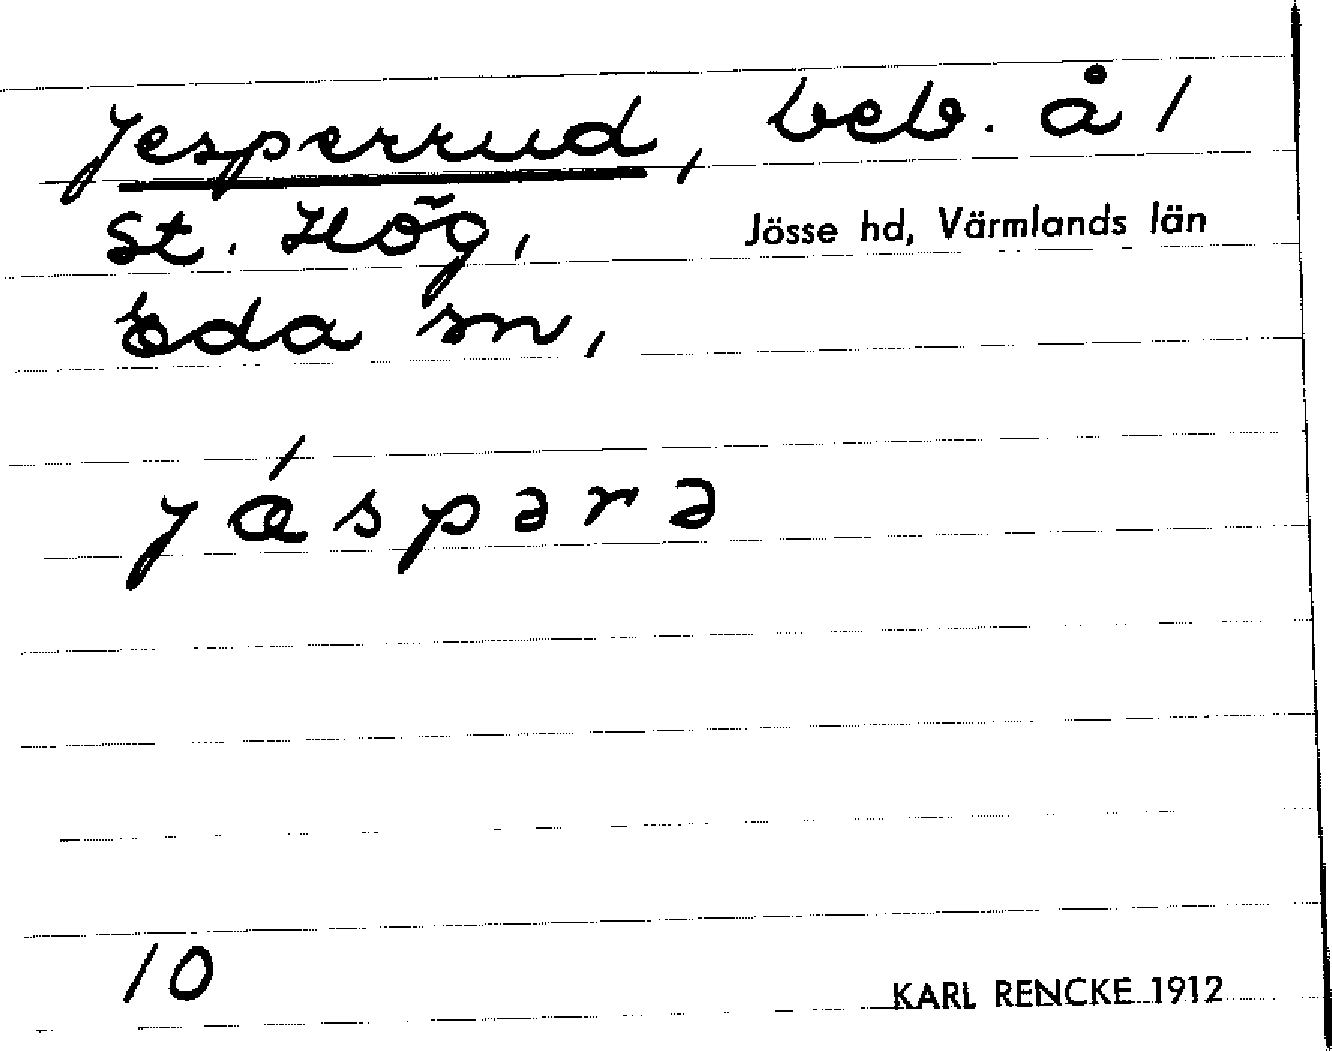 Jesperrud, beb. å 1
St. Hög, Jösse hd, Värmlands län
Eda sn,
jǽspərə
10 KARL RENCKE 1912